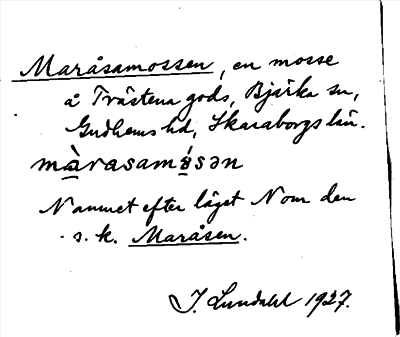 Maråsamossen, en mosse
å Trästena gods, Bjärka sn,
Gudhems hd, Skaraborgs län.
màrasamósən
Namnet efter läget N om den
s. k. Maråsen.
J. Lundahl 1927.